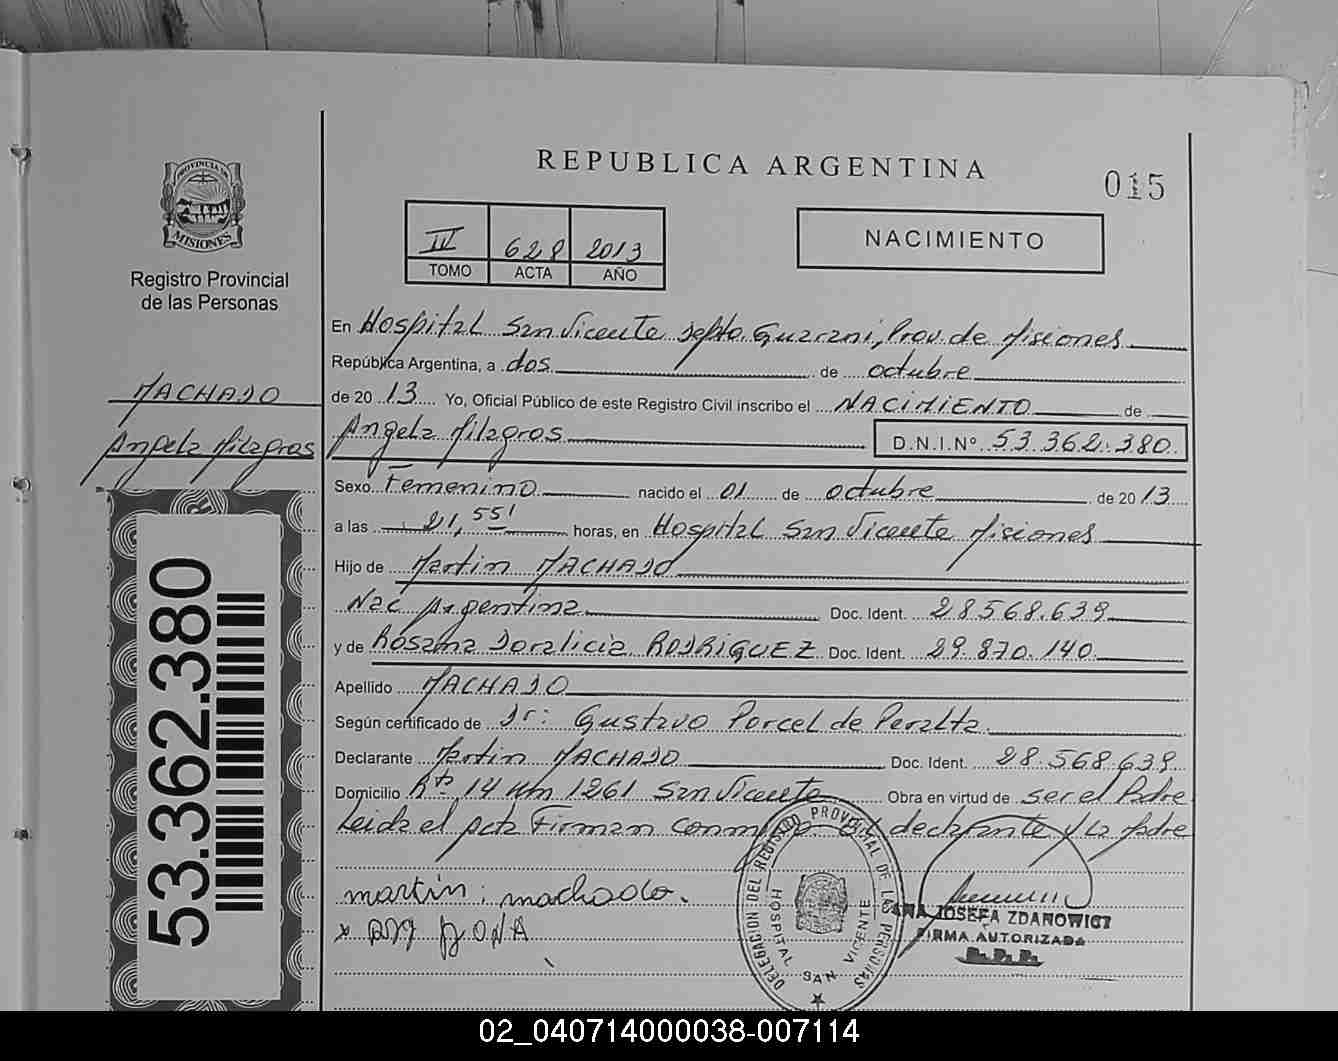 REPUBLICA ARGENTINA
015
PROVINCIA DE
MISIONES
Registro Provincial
de las Personas
IV 628 2013
TOMO ACTA AÑO
NACIMIENTO
En Hospital San Vicente Depto. Guarani, Prov. de Misiones
República Argentina, a dos de octubre
MACHADO
de 20 13 Yo, Oficial Público de este Registro Civil inscribo el NACIMIENTO de
Angela Milagros
Angela Milagros D.N.I.Nº 53.362.380
Sexo Femenino nacido el 01 de octubre de 20 13
a las 21,55' horas, en Hospital San Vicente Misiones
Hijo de Martin MACHADO
Nac Argentina Doc. Ident. 28.568.639
y de Rosana Doralicia RODRIGUEZ Doc. Ident. 29.870.140
Apellido MACHADO
Según certificado de Dr: Gustavo Porcel de Peralta
Declarante Martin MACHADO Doc. Ident. 28.568.639
Domicilio Rta 14 Km 1261 San Vicente Obra en virtud de ser el Padre
Leida el acta Firman conmigo el declarante y La Madre
martin machado.
53.362.380
DELEGACION DEL REGISTRO PROVINCIAL DE LAS PERSONAS
HOSPITAL SAN VICENTE
ANA JOSEFA ZDANOWICZ
FIRMA AUTORIZADA
R. P. P.
02_040714000038-007114